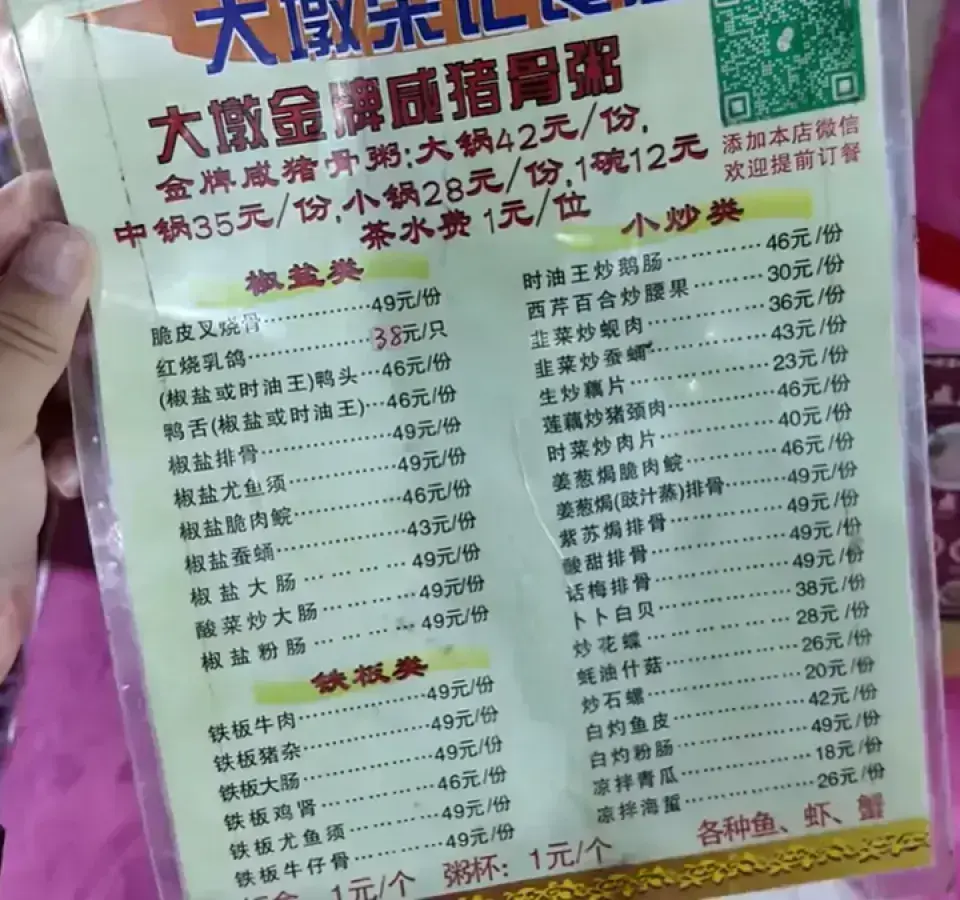 大墩
大墩金牌咸猪骨粥
金牌咸猪骨粥:大锅42元/份,
中锅35元/份,小锅28元/份,1碗12元
茶水费 1元/位
添加本店微信
欢迎提前订餐
椒盐类
脆皮叉烧骨……………49元/份
红烧乳鸽……………38元/只
(椒盐或时油王)鸭头…46元/份
鸭舌(椒盐或时油王)…46元/份
椒盐排骨……………49元/份
椒盐尤鱼须……………49元/份
椒盐脆肉鲩……………46元/份
椒盐蚕蛹……………43元/份
椒盐大肠……………49元/份
酸菜炒大肠…………49元/份
椒盐粉肠……………49元/份
铁板类
铁板牛肉……………49元/份
铁板猪杂……………49元/份
铁板大肠……………49元/份
铁板鸡肾……………46元/份
铁板尤鱼须…………49元/份
铁板牛仔骨…………49元/份
小炒类
时油王炒鹅肠…………46元/份
西芹百合炒腰果………30元/份
韭菜炒蚬肉……………36元/份
韭菜炒蚕蛹……………43元/份
生炒藕片……………23元/份
莲藕炒猪颈肉…………46元/份
时菜炒肉片……………40元/份
姜葱焗脆肉鲩…………46元/份
姜葱焗(豉汁蒸)排骨……49元/份
紫苏焗排骨……………49元/份
酸甜排骨……………49元/份
话梅排骨……………49元/份
卜卜白贝……………38元/份
炒花蝶……………28元/份
蚝油什菇……………26元/份
炒石螺……………20元/份
白灼鱼皮……………42元/份
白灼粉肠……………49元/份
凉拌青瓜……………18元/份
凉拌海蜇……………26元/份
各种鱼、虾、蟹
1元/个 粥杯：1元/个